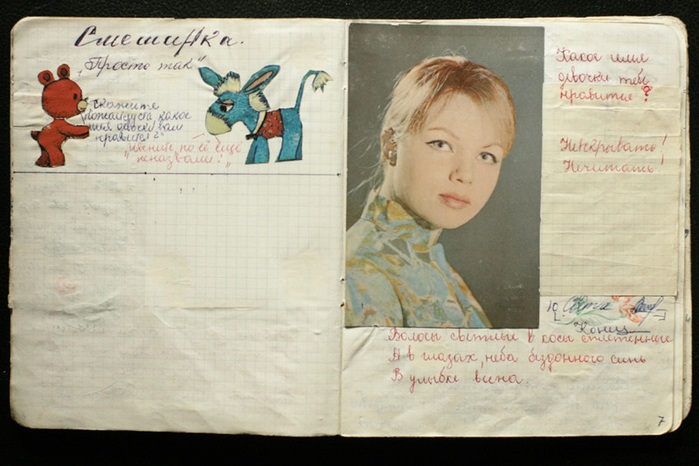 Смешинка.
„Просто так"
„Скажите
пожалуйста какое
имя девочки вам
нравится?"
но её ещё
неназвали!"
Какое имя
девочки тебе
нравится?
Невскрывать!
Нечитать!
10
Конец
Волосы светлые в косы сплетенные
А в глазах, неба бездонного синь
В улыбке весна.
7